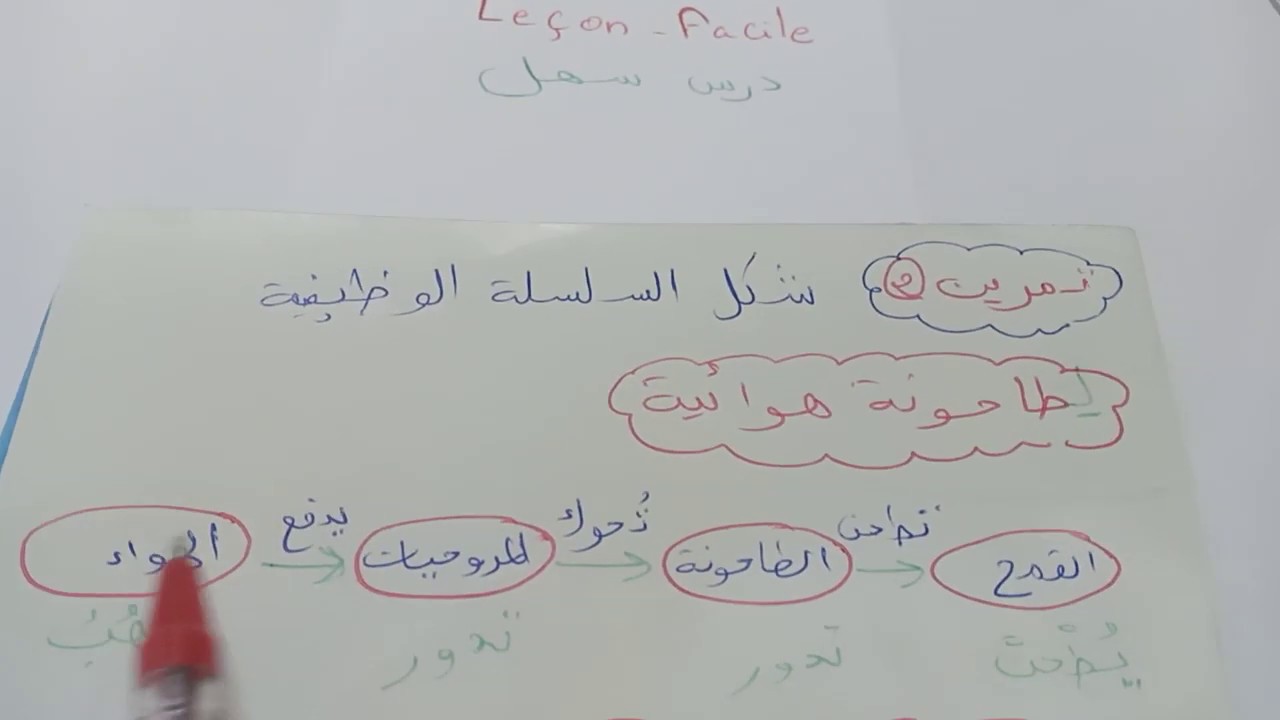 Leçon - Facile
درس سهل
تمرين 2 شكل السلسلة الوظيفية
لطاحونة هوائية
الهواء يدفع المروحيات تُحرك الطاحونة تطحن القمح
تدور تدور يُطحن